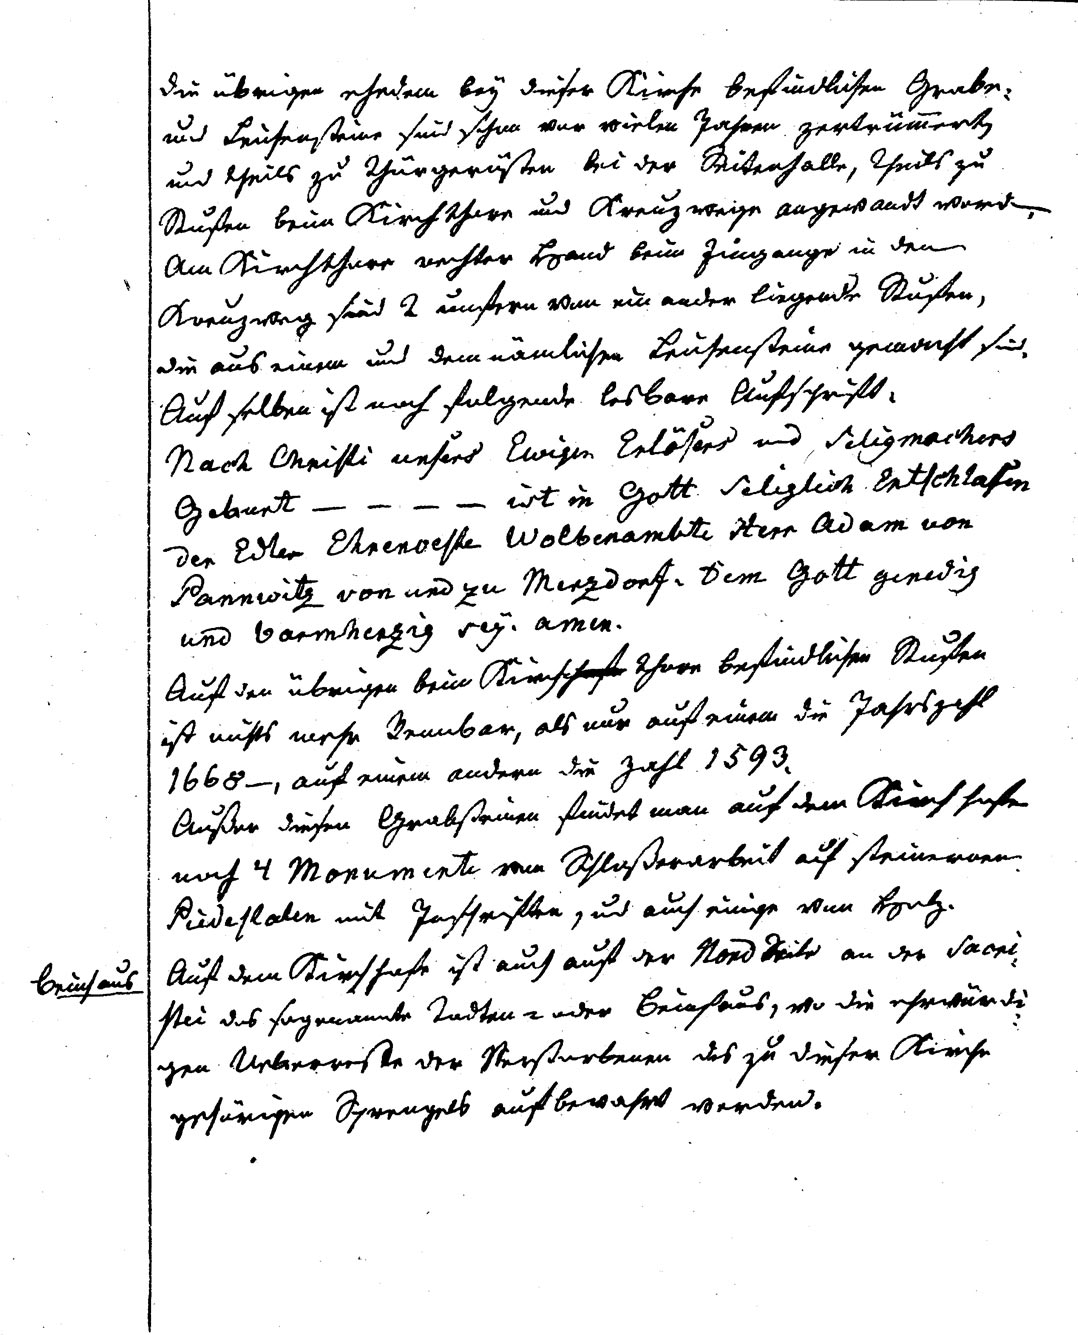 die übrigen ehedem beÿ dieser Kirche befindlichen Grabe-
und Leichensteine sind schon vor vielen Jahren zertrüm̅ert,
und theils zu Thürgerüsten bei der Seitenhalle, theils zu
Stuffen beim Kirchthore und Kreuzwege angewandt word.
Am Kirchthore rechter Hand beim Eingange in den
Kreuzweg sind 2 unfern von einander liegende Stuffen,
die aus einem und dem nämlichen Leichensteine gemacht sind.
Auf selben ist noch folgende lesbare Aufschrift.
Nach Christi unsers Ewigen Erlösers und Seligmachers
Geburt — — — — ist in Gott Seliglich Entschlafen
der Edler Ehrenveste Wolbenambte Herr Adam von
Pannwitz von und zu Merzdorf. Dem Gott genedig
und barmherzig seÿ. amen.
Auf den übrigen beim Kirchthore befindlichen Stuffen
ist nichts mehr kennbar, als nur auf einem die Jahrszahl
1668—, auf einem andern die Zahl 1593.
Außer diesen Grabsteinen findet man auf dem Kirchhofe
noch 4 Monumente von Schlosserarbeit auf steinernen
Piedestalen mit Inschriften, und auch einige von Holz.
beinhaus
Auf dem Kirchhofe ist auch auf der Nord Seite an der Sacri-
stei das sogenannte Todten- oder Beinhaus, wo die ehrwürdi-
gen Ueberreste der Verstorbenen des zu dieser Kirche
gehörigen Sprengels aufbewahrt werden.